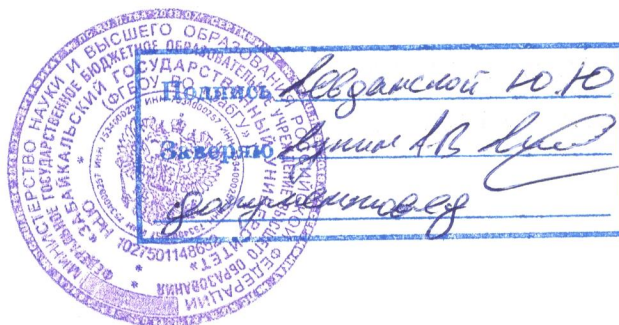 МИНИСТЕРСТВО НАУКИ И ВЫСШЕГО ОБРАЗОВАНИЯ РОССИЙСКОЙ ФЕДЕРАЦИИ
ФЕДЕРАЛЬНОЕ ГОСУДАРСТВЕННОЕ БЮДЖЕТНОЕ ОБРАЗОВАТЕЛЬНОЕ УЧРЕЖДЕНИЕ ВЫСШЕГО ОБРАЗОВАНИЯ
«ЗАБАЙКАЛЬСКИЙ ГОСУДАРСТВЕННЫЙ УНИВЕРСИТЕТ»
(ФГБОУ ВО «ЗабГУ»)
Подпись Левданской Ю.Ю
Заверяю А.В
документовед